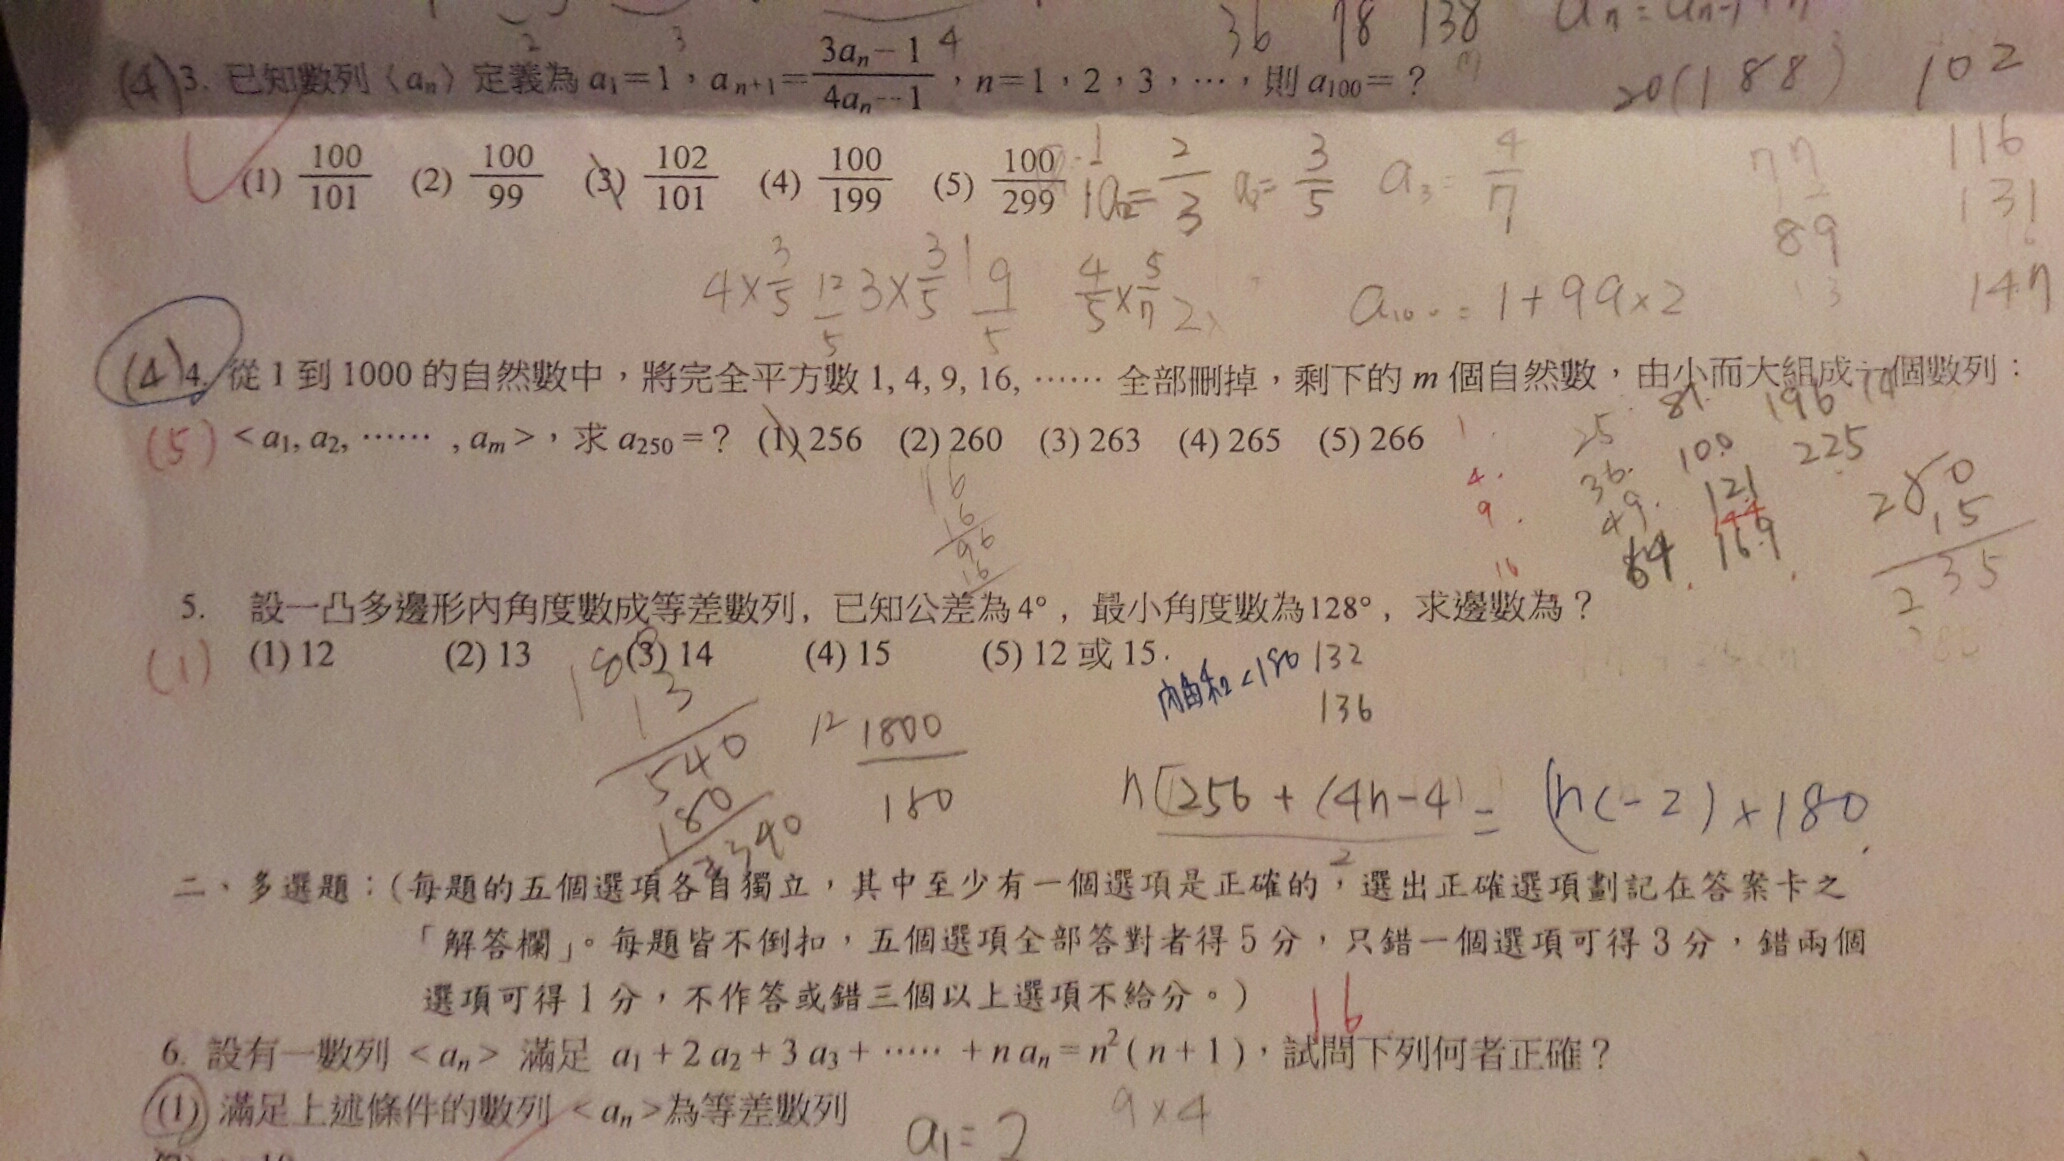 36 78 138
(4) 3. 已知數列〈aₙ〉定義為 a₁=1，aₙ₊₁=(3aₙ−1)/(4aₙ−1)，n=1，2，3，…，則 a₁₀₀=？
20(188) 102
(1) 100/101 (2) 100/99 (3) 102/101 (4) 100/199 (5) 100/299
2/3 3/5 a₃ = 4/7
77 116
12 131
89
13 147
4×3/5 12/5 3×3/5 9/5 4/5×5/7
a₁₀₀ = 1+99×2
(4) 4. 從 1 到 1000 的自然數中，將完全平方數 1, 4, 9, 16, …… 全部刪掉，剩下的 m 個自然數，由小而大組成一個數列：
(5) <a₁, a₂, …… , aₘ>，求 a₂₅₀=？ (1) 256 (2) 260 (3) 263 (4) 265 (5) 266
1 25 81 196
4 36 100 225
9 49 121
16 64 144
169
250
15
235
16
16
96
16
5. 設一凸多邊形內角度數成等差數列, 已知公差為 4°, 最小角度數為128°, 求邊數為？
(1) (1) 12 (2) 13 (3) 14 (4) 15 (5) 12 或 15.
18
13
540
180
2340
12 1800
180
<180 132
136
n[256 + (4n−4) / 2 = (n−2)×180
二、多選題：(每題的五個選項各自獨立，其中至少有一個選項是正確的，選出正確選項劃記在答案卡之
「解答欄」。每題皆不倒扣，五個選項全部答對者得 5 分，只錯一個選項可得 3 分，錯兩個
選項可得 1 分，不作答或錯三個以上選項不給分。)
16
6. 設有一數列 <aₙ> 滿足 a₁+2a₂+3a₃+…… +naₙ=n²(n+1)，試問下列何者正確？
(1) 滿足上述條件的數列 <aₙ>為等差數列
a₁=2
9×4